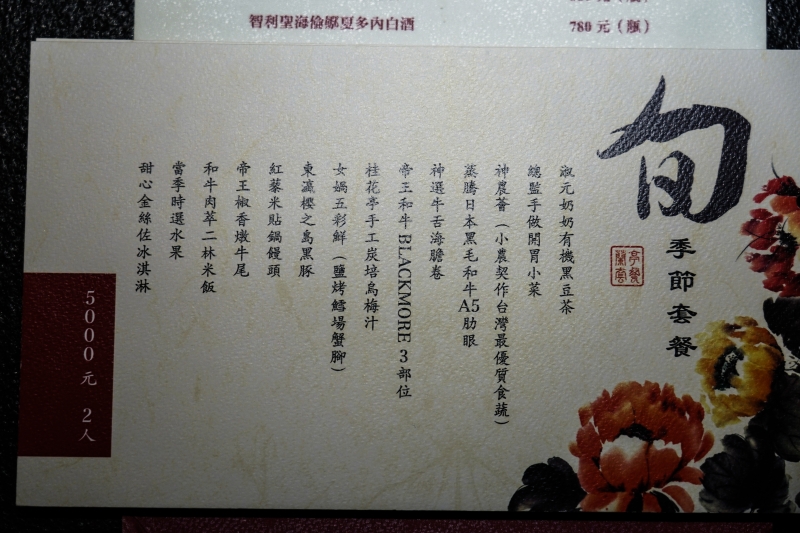 智利聖海倫娜夏多內白酒
780元（瓶）
旬
季節套餐
淑元奶奶有機黑豆茶
總監手做開胃小菜
神農薈（小農契作台灣最優質食蔬）
蒸騰日本黑毛和牛A5肋眼
神選牛舌海膽卷
帝王和牛BLACKMORE 3部位
桂花亭手工炭培烏梅汁
女媧五彩鮮（鹽烤鱈場蟹腳）
東瀛櫻之島黑豚
紅藜米貼鍋饅頭
帝王椒香燉牛尾
和牛肉萃二林米飯
當季時選水果
甜心金絲佐冰淇淋
5000元 2人